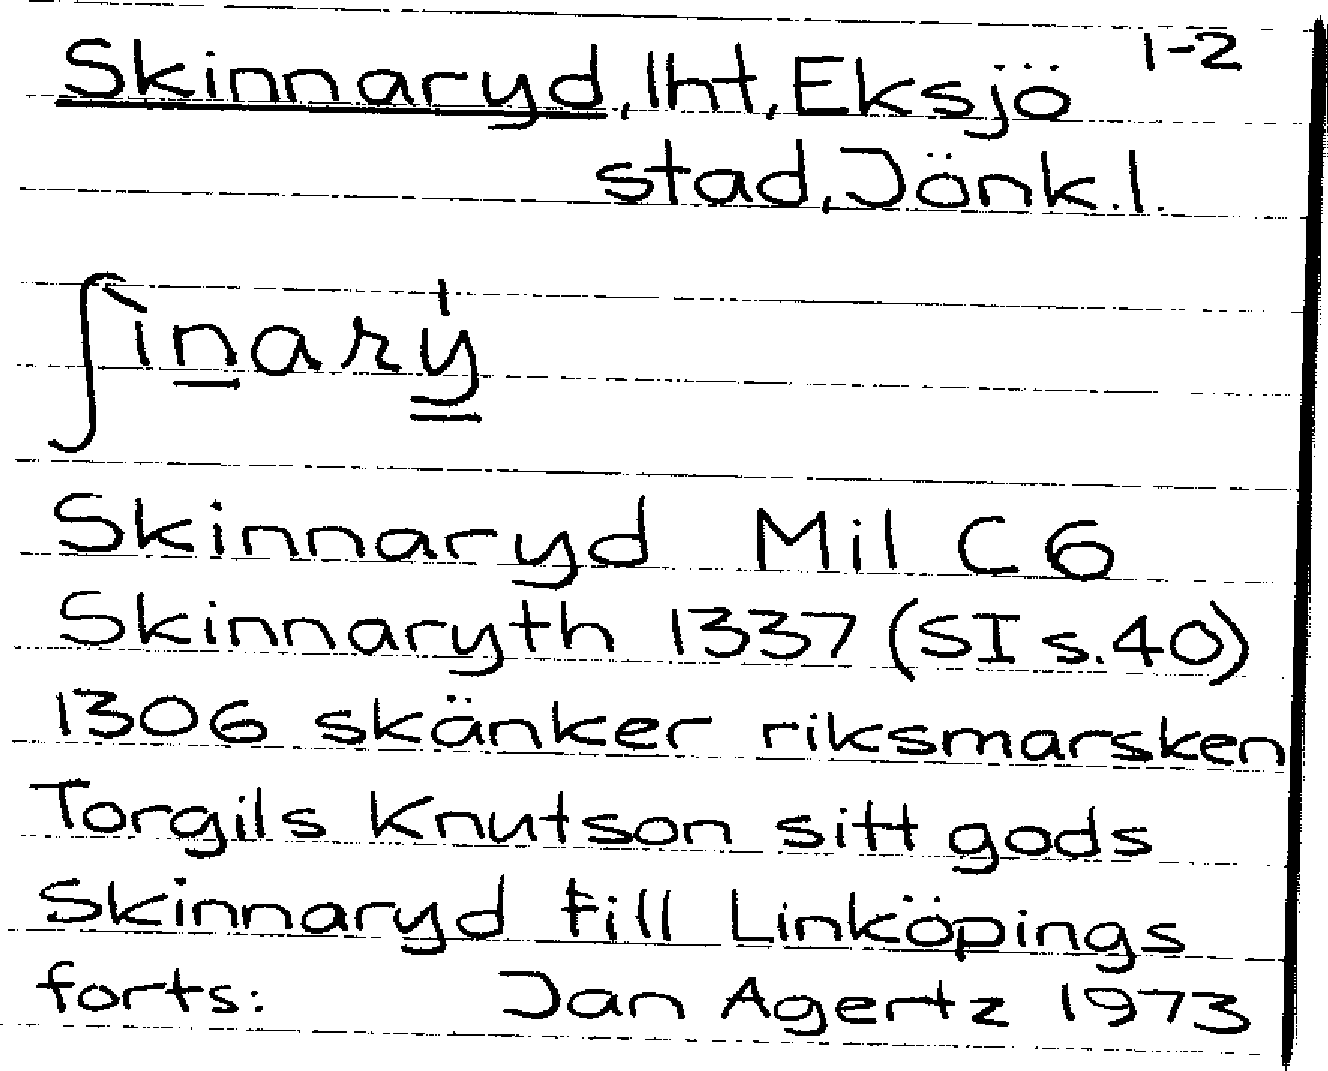 Skinnaryd, lht, Eksjö 1-2
stad, Jönk.l.
ʃìnarý
Skinnaryd Mil C6
Skinnaryth 1337 (SI s.40)
1306 skänker riksmarsken
Torgils Knutson sitt gods
Skinnaryd till Linköpings
forts: Jan Agertz 1973